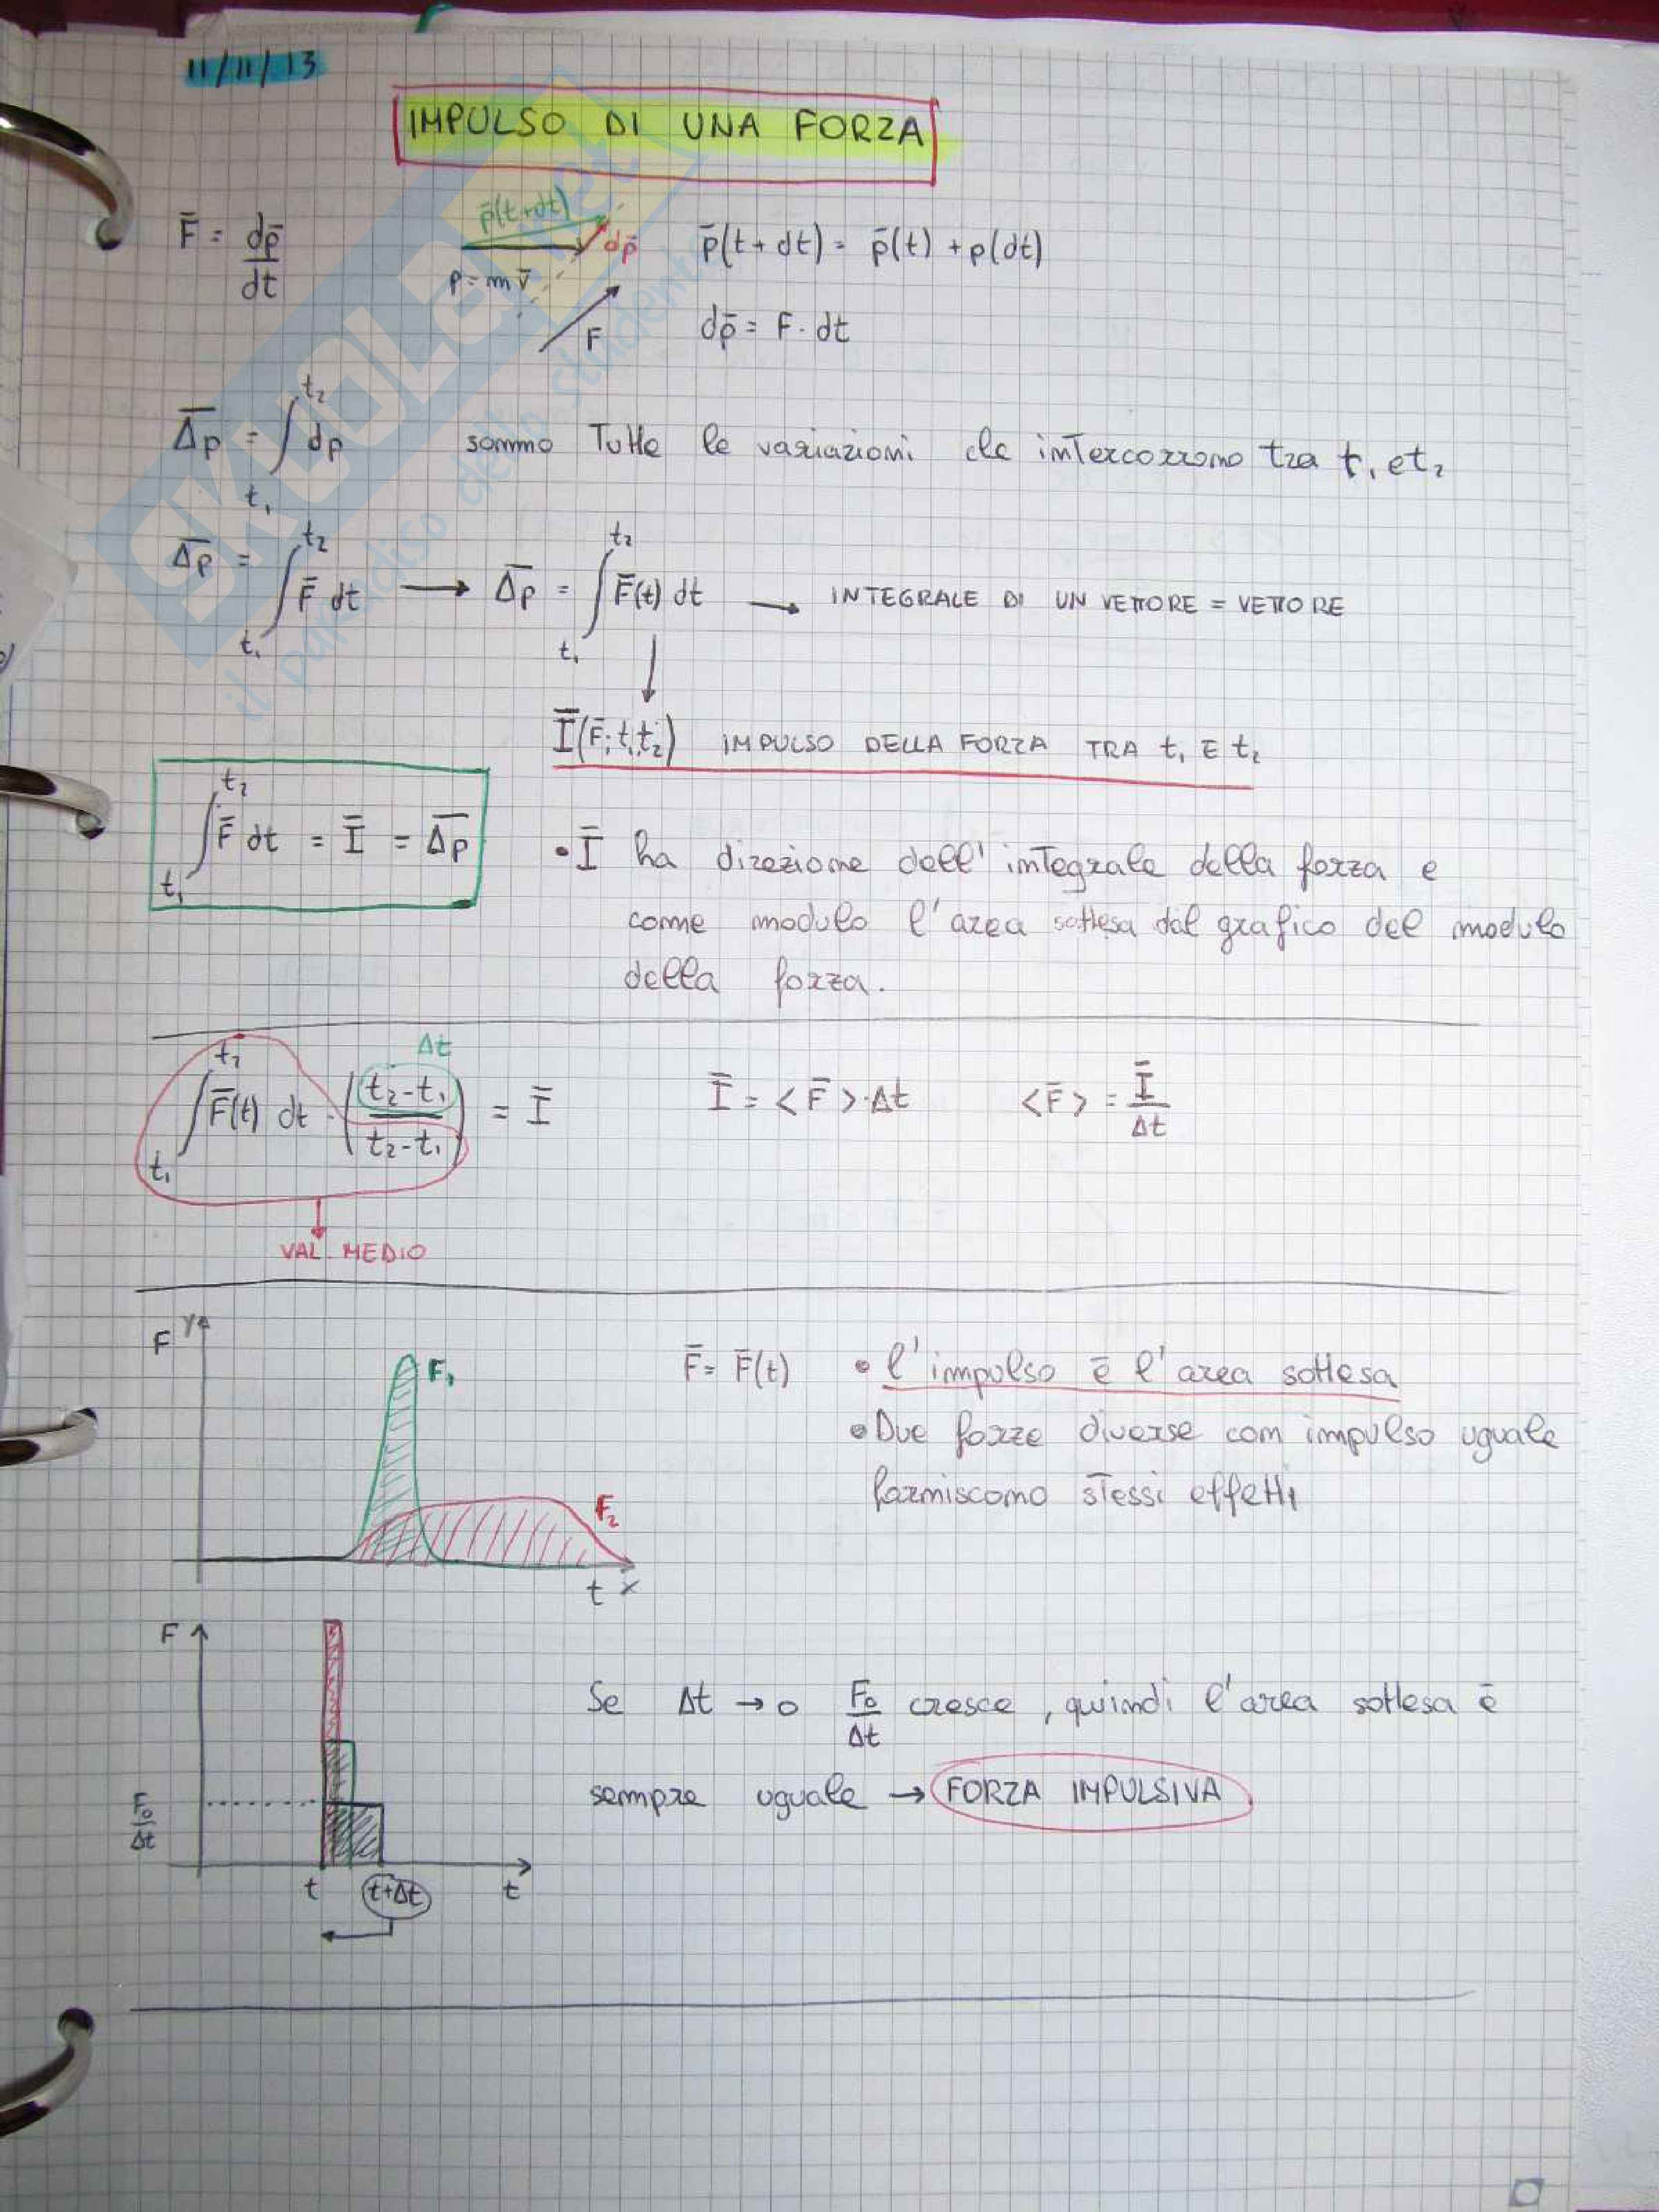 11/11/13
IMPULSO DI UNA FORZA
F̄ = dp̄/dt
p̄(t+dt)
dp̄
p = mv̄
F
p̄(t + dt) = p̄(t) + p(dt)
dp̄ = F · dt
Δp̄ = ∫ t₁ t₂ dp sommo Tutte le variazioni che intercorrono tra t₁ e t₂
Δp̄ = ∫ t₁ t₂ F̄ dt → Δp̄ = ∫ t₁ t₂ F̄(t) dt → INTEGRALE DI UN VETTORE = VETTORE
Ī(F̄; t₁, t₂) IMPULSO DELLA FORZA TRA t₁ E t₂
∫ t₁ t₂ F̄ dt = Ī = Δp̄
• Ī ha direzione dell' integrale della forza e
come modulo l'area sottesa dal grafico del modulo
della forza.
Δt
∫ t₁ t₂ F̄(t) dt · (t₂-t₁ / t₂-t₁) = Ī
Ī = <F̄>·Δt
<F̄> = Ī/Δt
VAL. MEDIO
F y
F₁
F₂
t x
F̄ = F̄(t) • l'impulso è l'area sottesa
• Due forze diverse con impulso uguale
forniscono stessi effetti
F
F₀/Δt
t
t+Δt
t
Se Δt → 0 F₀/Δt cresce, quindi l'area sottesa è
sempre uguale → FORZA IMPULSIVA
SKUOLA.net
il paradiso dello studente